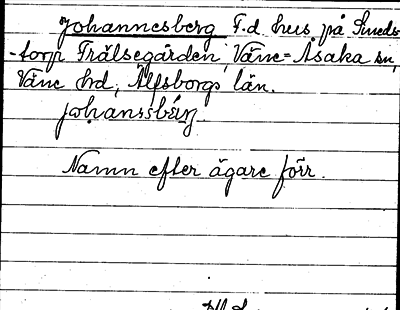 Johannesberg F.d. hus på Smeds-
-torp Frälsegården, Väne-Åsaka sn,
Väne hd, Älfsborgs län.
johanssbérj
Namn efter ägare förr.